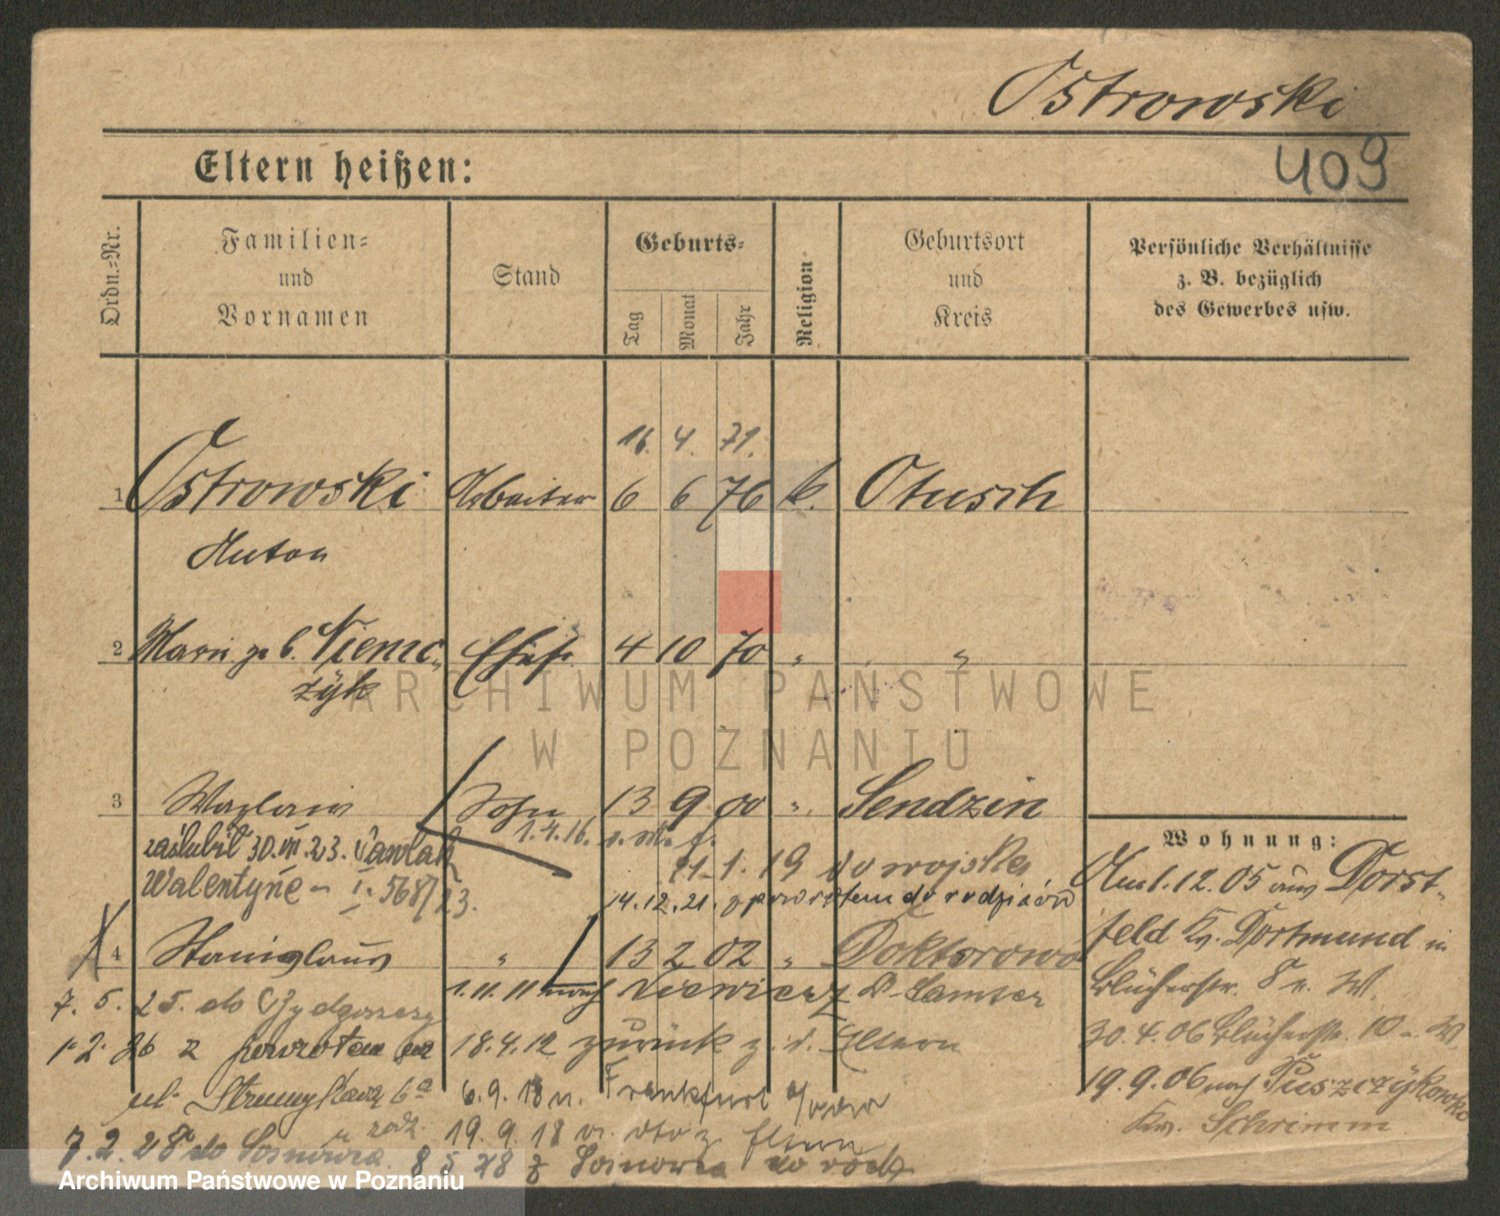 Ostrowski
Eltern heißen:
409
Ordn.-Nr.
Familien-
und
Vornamen
Stand
Geburts-
Tag
Monat
Jahr
Religion
Geburtsort
und
Kreis
Persönliche Verhältnisse
z. B. bezüglich
des Gewerbes usw.
16. 4. 71.
1 Ostrowski Arbeiter 6 6 76 k. Otusch
Anton
2 Marie geb. Niemc- Ehefr. 4 10 70 " "
zyk
3 Wazlaw Sohn 13 9 00 " Sendzin
1.4.16.
zaślubił 30.VII.23. Pawlak
11.1.19 do wojska
Walentynę - I. 568/23.
14.12.21. z powrotem do rodziców
4 Stanislaus " 13 2 02 " Doktorowo
1.11.11 nach Niewierz Kr. Samter
7. 5. 25. do Bydgoszczy
1.2.26 z powrotem
18.4.12 zurück z. d. Eltern
ul. Strumykowa 6a
6.9.18 n. Frankfurt a/Oder
19.9.18 v. dto z. Eltern
u rodz.
7.2.28 do Sosnowca
8 5 28 z Sosnowca do rodz.
Wohnung:
Am 1.12.05 aus Dorst-
feld Kr. Dortmund in
Blücherstr. 8 u. W.
30.4.06 Blücherstr. 10 u. W.
19.9.06 nach Puszczykowko
Kr. Schrimm
ARCHIWUM PAŃSTWOWE
W POZNANIU
Archiwum Państwowe w Poznaniu